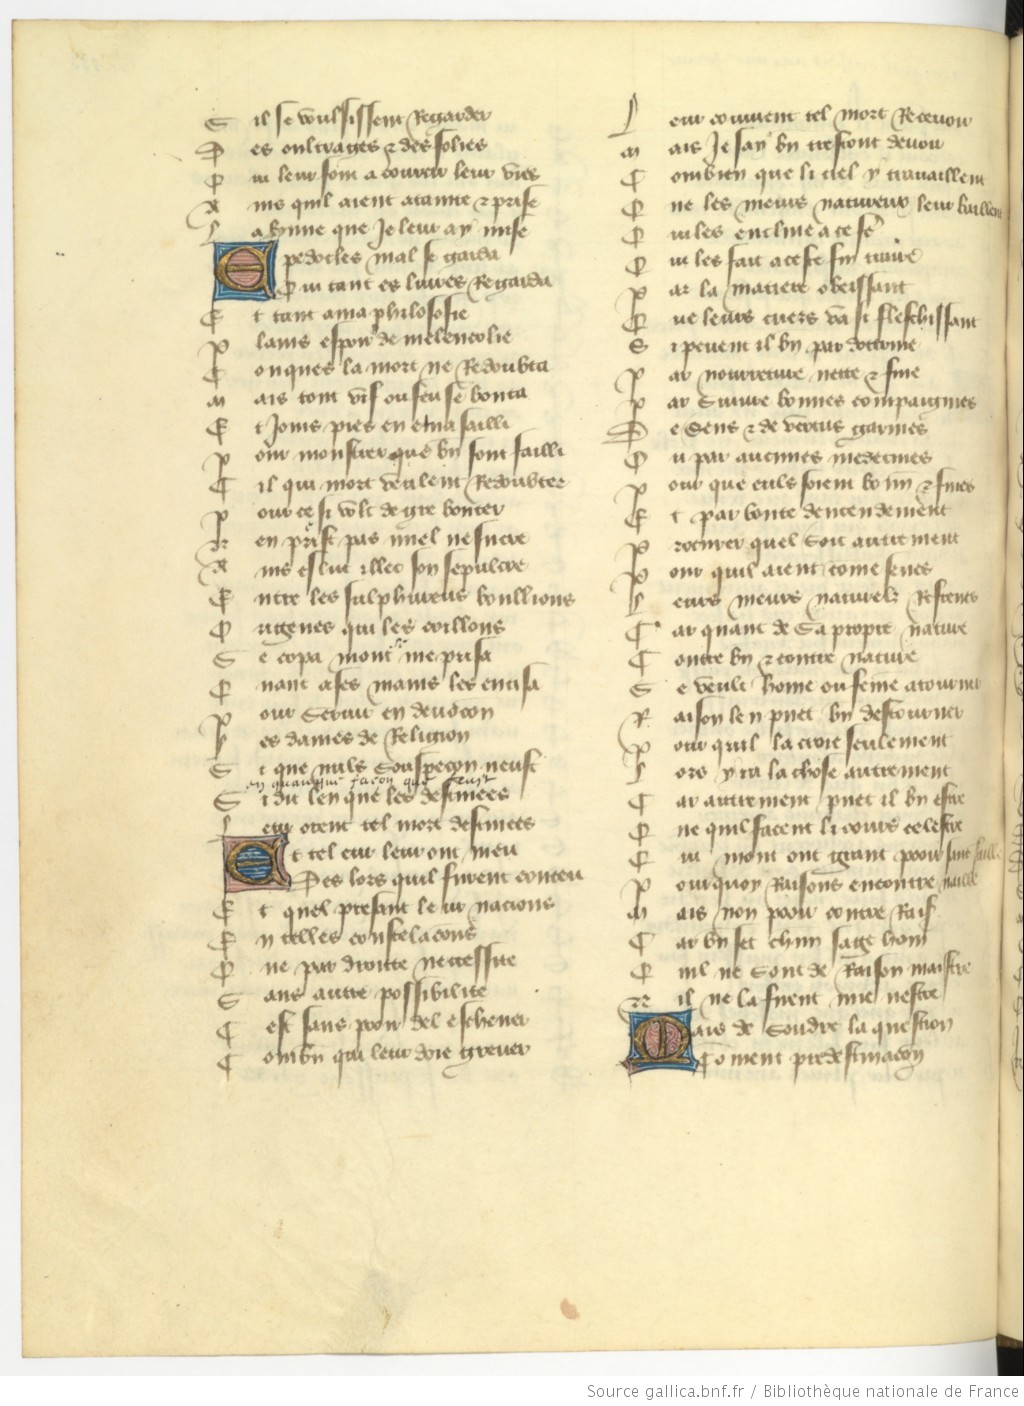 S il se voulsissent Regarder
D es oultrages & des folies
Q ui leur font acourcir leur vies
A ins quil aient atainte & prise
L a bynne que Je leur ay mise
E pedocles mal se garda
Q ui tant es livres Regarda
E t tant ama philosofie
P lains espoir de melencolie
C onques la mort ne Redoubta
M ais tout vif ou feu se bouta
E t Joins pies en ethna sailli
P our monstrer que bn sont failli
C il qui mort veulent Redoubter
P our ce si volt de gre bouter
N en prist pas miel ne sucre
A ins eslut illec son sepulcre
E ntre les sulphureus boullions
O rigenes qui les coillons
S e copa mont me prisa
Q uant a ses mains les encisa
P our Servir en devocon
L es dames de Religion
S i que nulz Souspecon neust
en quaique facon que feust
S i dit len que les destinees
L eur orent tel mort destinees
E t tel eur leur ont meu
Des lors quil furent conceu
E t quel prisant leur nacions
E n telles constelacons
Q ue par droitte necessite
S ans autre possibilite
C est sans pooir del eschever
C ombn qui leur doie grever
L eur convient tel mort Recevoir
M ais Je say bn tresfont devoir
C ombien que li ciel y travaillent
Q ue les meurs natureux leur baillent
Q ui les encline a ce
Q ui les fait a ceste fin
P ar la matiere obeissant
Q ue leurs cuers va si fleschissant
S i pevent il bn par doctrine
P ar nourreture nette & fine
P ar Suivre bonnes compaignies
D e Sens & de vertus garnies
O u par aucunes medecines
P our que euls soient bonn & fines
E t par bonte dentendement
P rocurer quel Soit autrement
P our quil aient come senes
L eurs meurs naturelz Refrenes
C ar quant de Sa propre nature
C ontre bn & contre nature
S e veult home ou feme atourner
R aison len puet bn destourner
P our quil la croie seulement
L ors yra la chose autrement
C ar autrement puet il bn estre
Q ue quil facent li cours celestre
Q ui mont ont grant pooir sans faille
P our quoy Raisons encontre naille
M ais non pooir contre Rais
C ar bn set chun sage hom
Q uil ne Sont de Raison maistre
N il ne la firent mie nestre
M ais de Soudre la question
Coment predestinacon
Source gallica.bnf.fr / Bibliothèque nationale de France